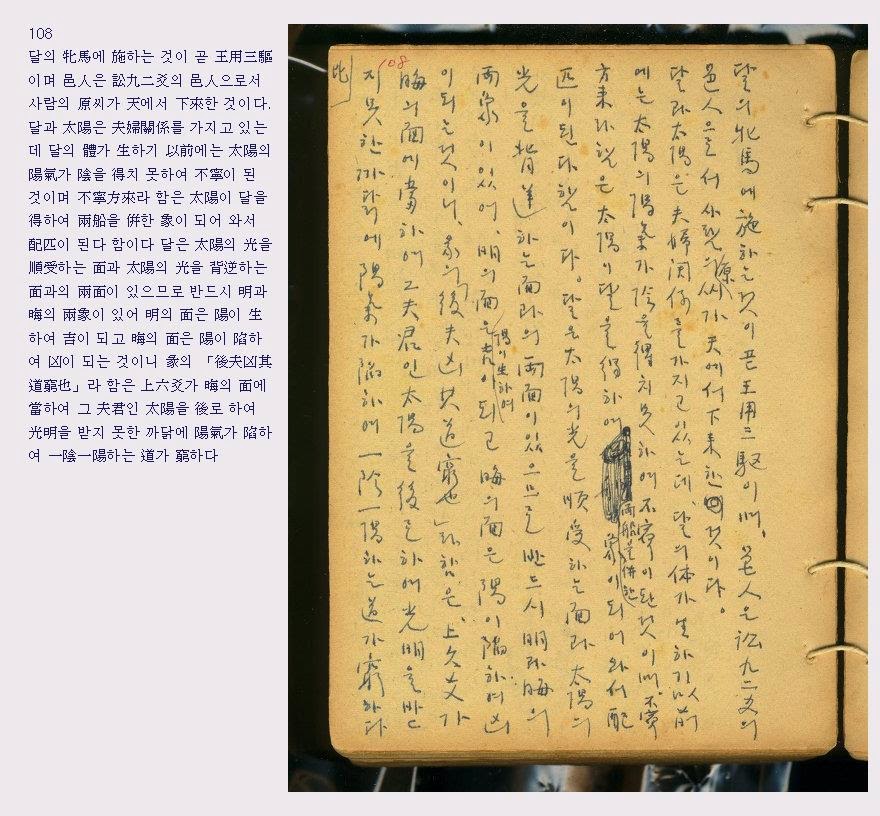 108
달의 牝馬에 施하는 것이 곧 王用三驅
이며 邑人은 訟九二爻의 邑人으로서
사람의 原씨가 天에서 下來한 것이다.
달과 太陽은 夫婦關係를 가지고 있는
데 달의 體가 生하기 以前에는 太陽의
陽氣가 陰을 得치 못하여 不寧이 된
것이며 不寧方來라 함은 太陽이 달을
得하여 兩船을 倂한 象이 되어 와서
配匹이 된다 함이다 달은 太陽의 光을
順受하는 面과 太陽의 光을 背逆하는
面과의 兩面이 있으므로 반드시 明과
晦의 兩象이 있어 明의 面은 陽이 生
하여 吉이 되고 晦의 面은 陽이 陷하
여 凶이 되는 것이니 彖의 「後夫凶其
道窮也」라 함은 上六爻가 晦의 面에
當하여 그 夫君인 太陽을 後로 하여
光明을 받지 못한 까닭에 陽氣가 陷하
여 一陰一陽하는 道가 窮하다
108
比
달의 牝馬에 施하는 것이 곧 王用三驅이며, 邑人은 訟九二爻의
邑人으로서 사람의 原씨가 天에서 下来한 것이다。
달과 太陽은 夫婦関係를 가지고 있는데, 달의 体가 生하기 以前
에는 太陽의 陽氣가 陰을 得치 못하여 不寧이 된 것이며, 不寧
方来라 함은 太陽이 달을 得하여 兩船을 倂한 象이 되어 와서 配
匹이 된다 함이다。달은 太陽의 光을 順受하는 面과 太陽의
光을 背逆하는 面과의 兩面이 있으므로 반드시 明과 晦의
兩象이 있어, 明의 面은 陽이 生하여 吉이 되고 晦의 面은 陽이 陷하여 凶
이 되는 것이니, 彖의「後夫凶其道窮也」라 함은, 上六爻가
晦의 面에 當하여 그 夫君인 太陽을 後로 하여 光明을 받
지 못한 까닭에 陽氣가 陷하여 一陰一陽하는 道가 窮하다